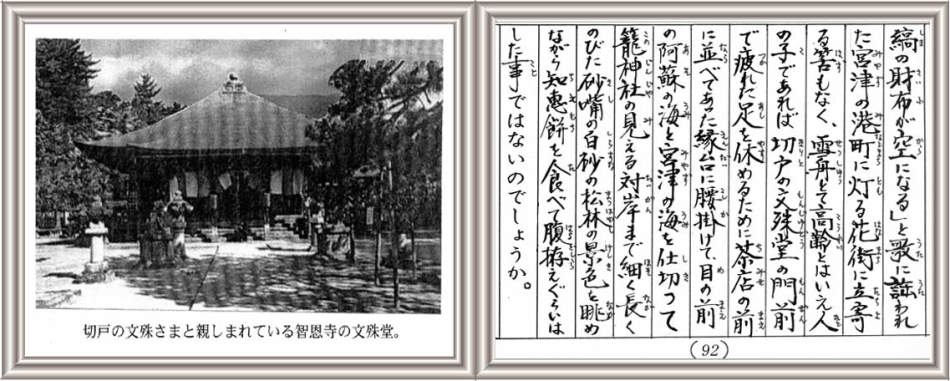 縞の財布が空になる」と歌に謳われ
た宮津の港町に灯る花街に立寄
る筈もなく、雪舟とて高齢とはいえ人
の子であれば切戸の文殊堂の門前
で疲れた足を休めるために茶店の前
に並べてあった縁台に腰掛けて、目の前
の阿蘇の海と宮津の海を仕切って
籠神社の見える対岸まで細く長く
のびた砂嘴の白砂の松林の景色を眺め
ながら知恵餅を食べて腹拵えぐらいは
した事ではないのでしょうか。
(92)
切戸の文殊さまと親しまれている智恩寺の文殊堂。